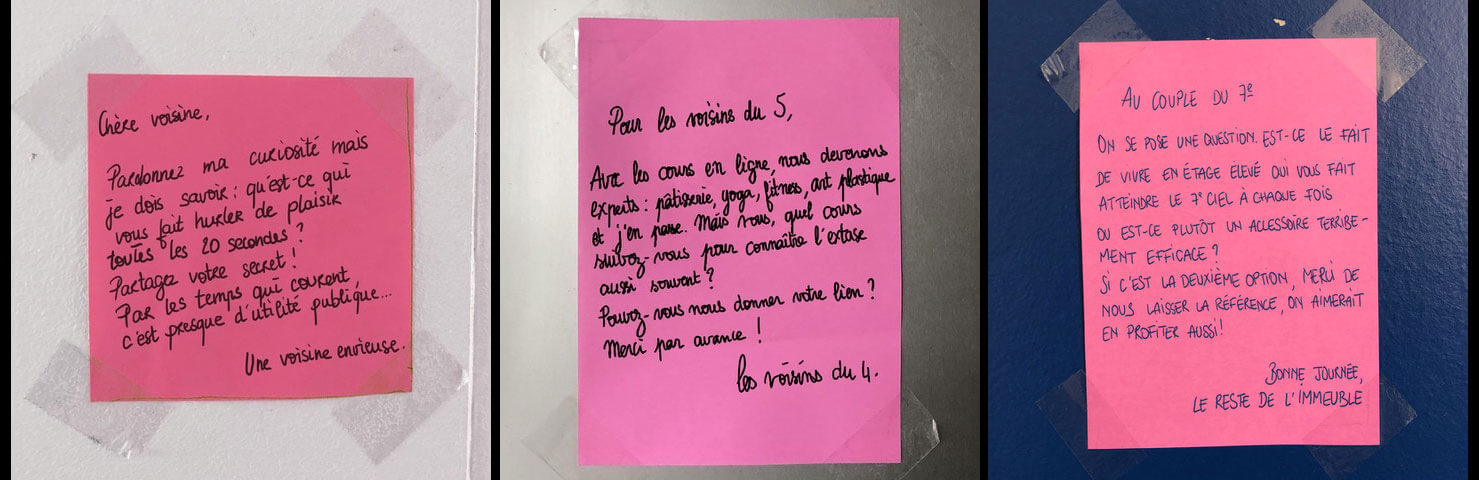 Chère voisine,
Pardonnez ma curiosité mais
je dois savoir : qu'est-ce qui
vous fait hurler de plaisir
toutes les 20 secondes ?
Partagez votre secret !
Par les temps qui courent,
c'est presque d'utilité publique...
Une voisine envieuse.
Pour les voisins du 5,
Avec les cours en ligne, nous devenons
experts : pâtisserie, yoga, fitness, art plastique
et j'en passe. Mais vous, quel cours
suivez-vous pour connaître l'extase
aussi souvent ?
Pouvez-vous nous donner votre lien ?
Merci par avance !
les voisins du 4.
AU COUPLE DU 7e
ON SE POSE UNE QUESTION. EST-CE LE FAIT
DE VIVRE EN ÉTAGE ÉLEVÉ QUI VOUS FAIT
ATTEINDRE LE 7e CIEL À CHAQUE FOIS
OU EST-CE PLUTÔT UN ACCESSOIRE TERRIBE-
MENT EFFICACE ?
SI C'EST LA DEUXIÈME OPTION, MERCI DE
NOUS LAISSER LA RÉFÉRENCE, ON AIMERAIT
EN PROFITER AUSSI !
BONNE JOURNÉE,
LE RESTE DE L'IMMEUBLE